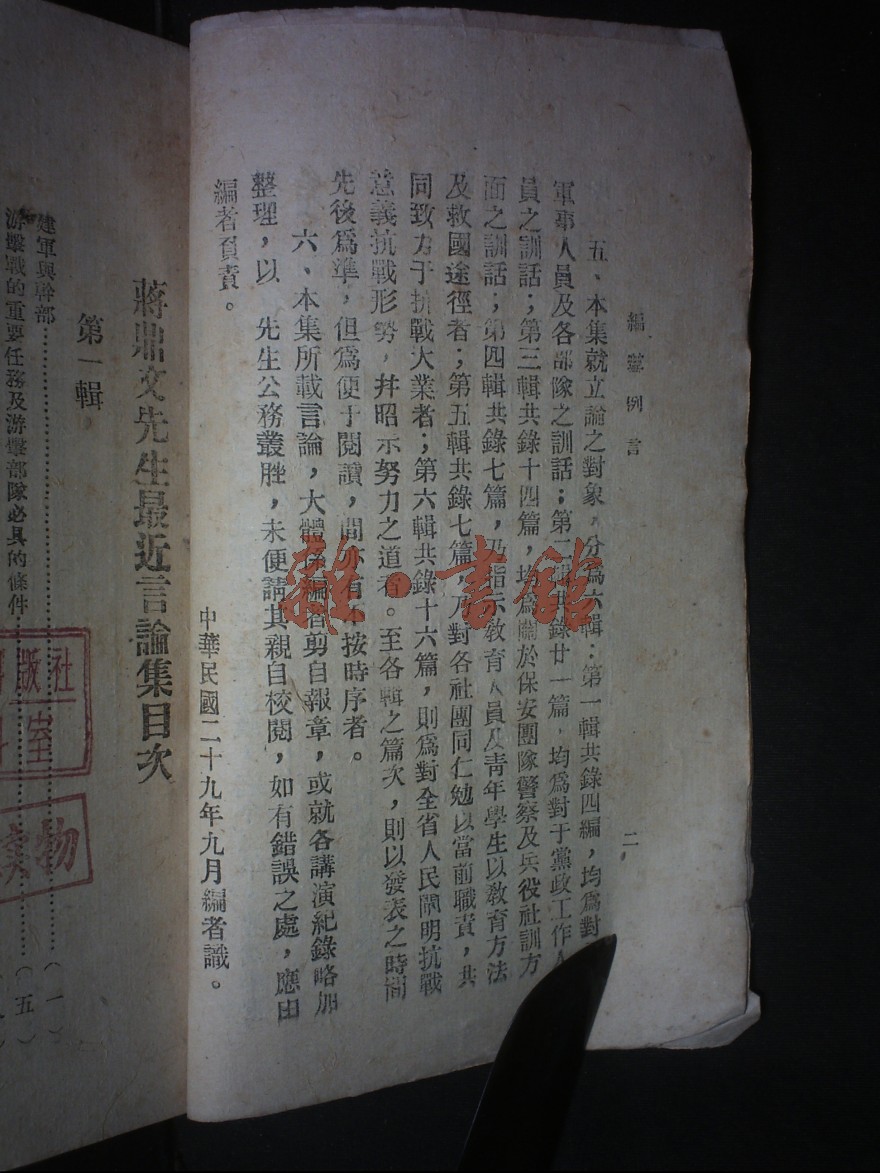 編輯例言
二
五、本集就立論之對象，分為六輯：第一輯共錄四編，均爲對
軍事人員及各部隊之訓話；第二輯共錄廿一篇，均爲對于黨政工作人
員之訓話；第三輯共錄十四篇，均爲關於保安團隊警察及兵役社訓方
面之訓話；第四輯共錄七篇，乃指示敎育人員及靑年學生以敎育方法
及救國途徑者；第五輯共錄七篇，乃對各社團同仁勉以當前職責，共
同致力于抗戰大業者；第六輯共錄十六篇，則爲對全省人民闡明抗戰
意義抗戰形勢，幷昭示努力之道者。至各輯之篇次，則以發表之時間
先後爲準，但爲便于閱讀，間亦有不按時序者。
六、本集所載言論，大體係編者剪自報章，或就各講演紀錄略加
整理，以　先生公務叢脞，未便請其親自校閱，如有錯誤之處，應由
編者負責。
中華民國二十九年九月編者識。
蔣鼎文先生最近言論集目次
第一輯
建軍與幹部……（一）
游擊戰的重要任務及游擊部隊必具的條件……（五）
雜·書館
版社
室
物